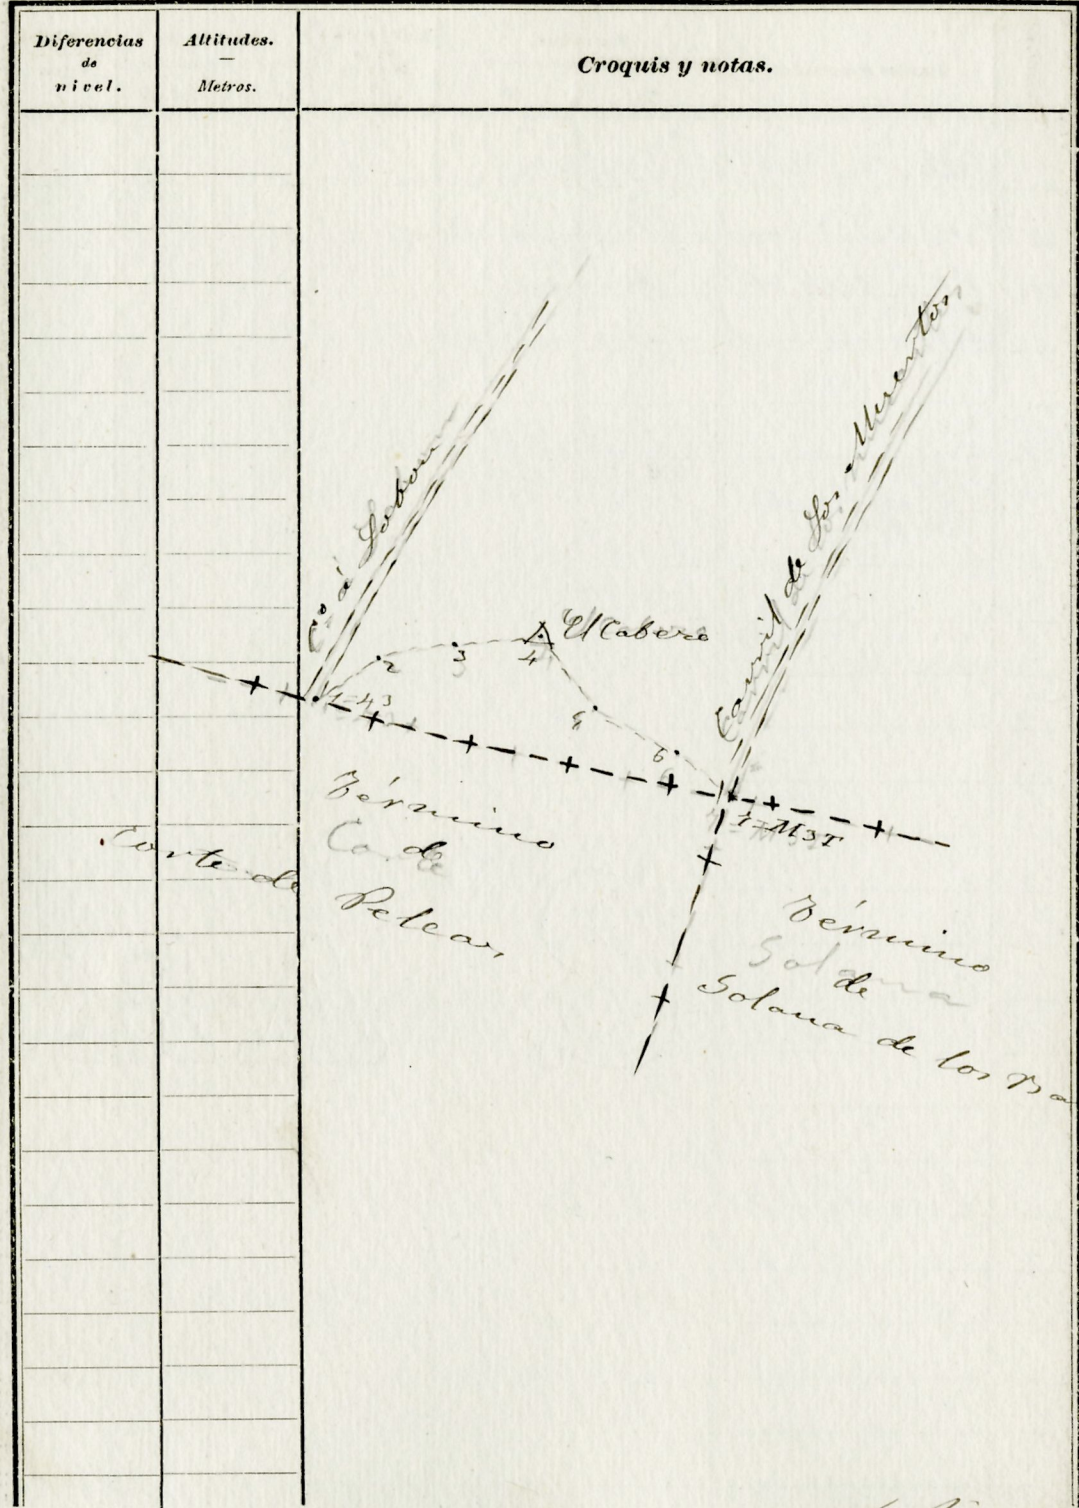 Diferencias
de
nivel.
Altitudes.
Metros.
Croquis y notas.
Co á Lobon
Carril de los
2
3
4
El Cabero
5
6
1-M3T
Término
de
Corte de
Peleas
Término
Solana
de
Solana de los Ba